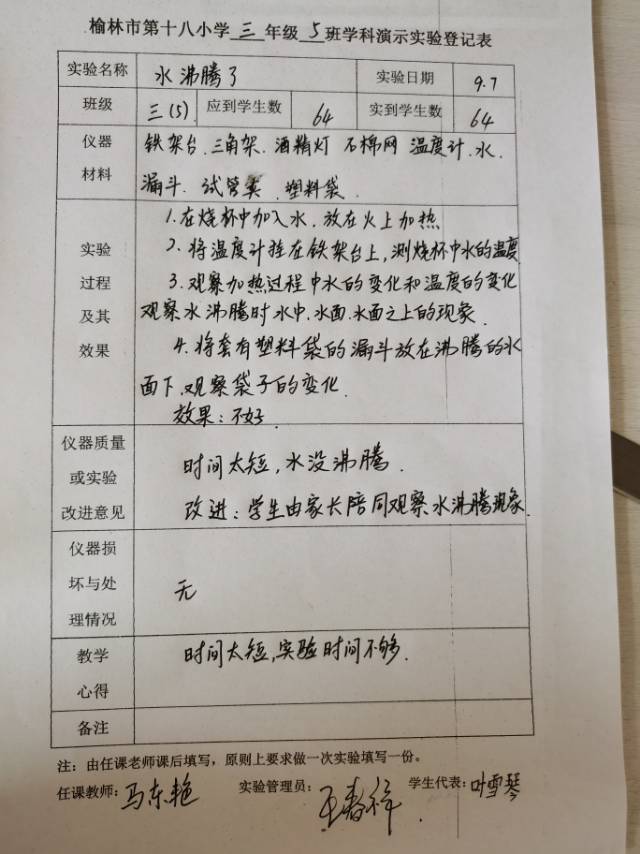 榆林市第十八小学三年级5班学科演示实验登记表
实验名称 水沸腾了 实验日期 9.7
班级 三(5) 应到学生数 64 实到学生数 64
仪器材料
铁架台.三角架.酒精灯 石棉网 温度计.水.
漏斗. 试管夹.塑料袋.
实验过程及其效果
1.在烧杯中加入水.放在火上加热
2.将温度计挂在铁架台上,测烧杯中水的温度
3.观察加热过程中水的变化和温度的变化
观察水沸腾时水中.水面.水面之上的现象.
4.将套有塑料袋的漏斗放在沸腾的水
面下.观察袋子的变化.
效果:不好.
仪器质量或实验改进意见
时间太短,水没沸腾.
改进:学生由家长陪同观察水沸腾现象.
仪器损坏与处理情况
无
教学心得
时间太短,实验时间不够.
备注
注:由任课老师课后填写,原则上要求做一次实验填写一份。
任课教师:马东艳 实验管理员:王春祥 学生代表:叶雪琴